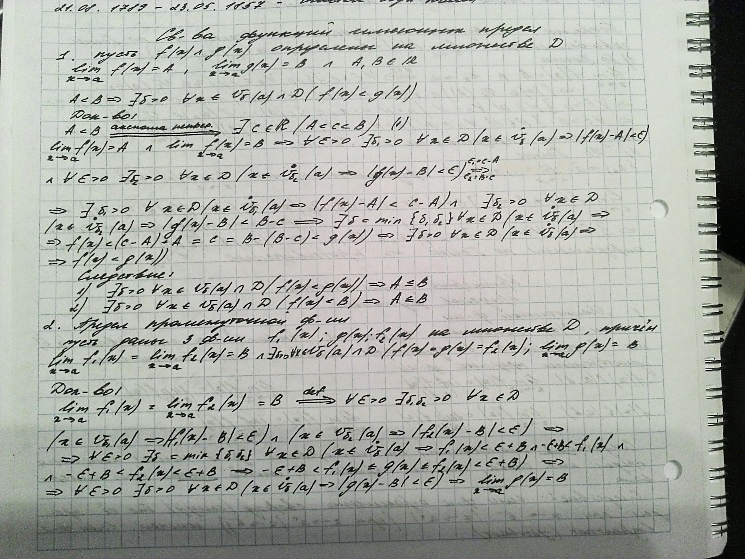 21.08.1789 - 23.05.1857 -
Св-ва функций имеющих предел
1. пусть f(x) ∧ g(x) определены на множестве D
lim x→a f(x) = A, lim x→a g(x) = B ∧ A, B ∈ ℝ
A < B ⇒ ∃δ>0 ∀x ∈ U̇δ(a) ∩ D (f(x) < g(x))
Док-во:
A < B ⇒ ∃ c ∈ ℝ (A < c < B) (1)
lim x→a f(x) = A ∧ lim x→a f(x) = B ⇒ ∀ε>0 ∃δ₁>0 ∀x ∈ D (x ∈ U̇δ₁(a) ⇒ |f(x)-A| < ε)
∧ ∀ε>0 ∃δ₂>0 ∀x ∈ D (x ∈ U̇δ₂(a) ⇒ |g(x)-B| < ε) ⇔ ε₁=c-A ε₂=B-c
⇒ ∃δ₁>0 ∀x ∈ D (x ∈ U̇δ₁(a) ⇒ |f(x)-A| < c-A) ∧ ∃δ₂>0 ∀x ∈ D
(x ∈ U̇δ₂(a) ⇒ |g(x)-B| < B-c ⇒ ∃δ = min {δ₁δ₂} ∀x ∈ D (x ∈ U̇δ(a) ⇒
⇒ f(x) < (c-A)+A = c = B-(B-c) < g(x)) ⇒ ∃δ>0 ∀x ∈ D (x ∈ U̇δ(a) ⇒
⇒ f(x) < g(x))
Следствие:
1) ∃δ>0 ∀x ∈ U̇δ(a) ∩ D (f(x) < g(x)) ⇒ A ≤ B
2) ∃δ>0 ∀x ∈ U̇δ(a) ∩ D (f(x) < B) ⇒ A ≤ B
2. Предел промежуточной ф-ии
пусть даны 3 ф-ии f₁(x); g(x); f₂(x) на множестве D, причём
lim x→a f₁(x) = lim x→a f₂(x) = B ∧ ∃δ>0 ∀x ∈ U̇δ(a) ∩ D (f₁(x) ≤ g(x) ≤ f₂(x); lim x→a g(x) = B
Док-во:
lim x→a f₁(x) = lim x→a f₂(x) = B def ⇒ ∀ε>0 ∃δ₁δ₂>0 ∀x ∈ D
(x ∈ U̇δ₁(a) ⇒ |f₁(x)-B| < ε) ∧ (x ∈ U̇δ₂(a) ⇒ |f₂(x)-B| < ε) ⇒
⇒ ∀ε>0 ∃δ = min {δ₁δ₂} ∀x ∈ D (x ∈ U̇δ(a) ⇒ f₁(x) < ε+B ∧ -ε+B < f₁(x) ∧
∧ -ε+B < f₂(x) < ε+B ⇒ -ε+B < f₁(x) ≤ g(x) ≤ f₂(x) < ε+B) ⇒
⇒ ∀ε>0 ∃δ>0 ∀x ∈ D (x ∈ U̇δ(a) ⇒ |g(x)-B| < ε) ⇒ lim x→a g(x) = B